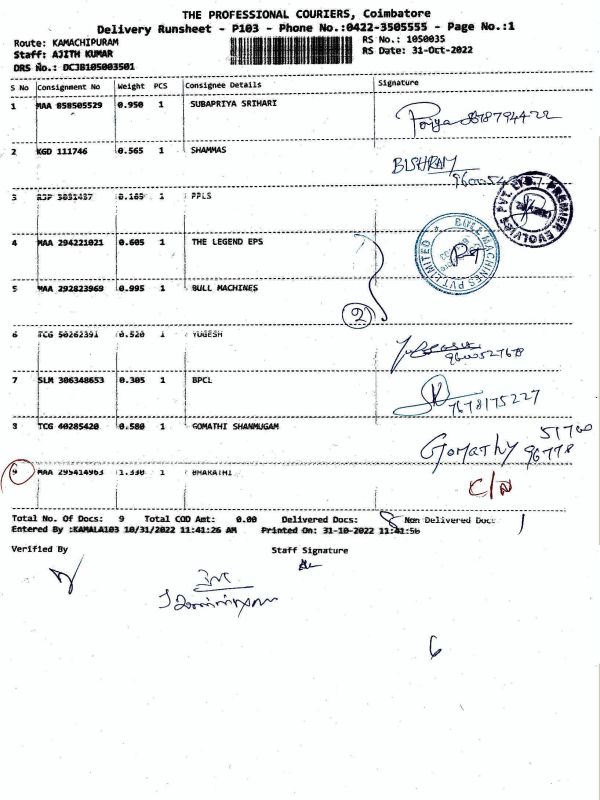 THE PROFESSIONAL COURIERS, Coimbatore
Delivery Runsheet - P103 - Phone No.:0422-3505555 - Page No.:1
Route: KAMACHIPURAM
Staff: AJITH KUMAR
DRS No.: DCJB105003501
RS No.: 1050035
RS Date: 31-Oct-2022
S No Consignment No Weight PCS Consignee Details Signature
1 MAA 858505529 0.950 1 SUBAPRIYA SRIHARI
Priya
2 KGD 111746 0.565 1 SHAMMAS
BISHRAM
3 1 PPLS
PVT. LTD. PREMIER EVOLVICS
4 MAA 294221021 0.605 1 THE LEGEND EPS
BULL MACHINES PVT LIMITED
5 MAA 292823969 0.995 1 BULL MACHINES
2
6 TCG 50262391 0.520 1 YUGESH
9600527678
7 SLM 306348653 0.305 1 BPCL
7678175227
8 TCG 40285420 0.580 1 GOMATHI SHANMUGAM
Gomathy 51760
96778
9 MAA 295414963 1.330 1 BHARATHI
C/N
Total No. Of Docs: 9 Total COD Amt: 0.00 Delivered Docs: 8 Non Delivered Docs: 1
Entered By :KAMALA103 10/31/2022 11:41:26 AM Printed On: 31-10-2022 11:41:56
Verified By Staff Signature
6